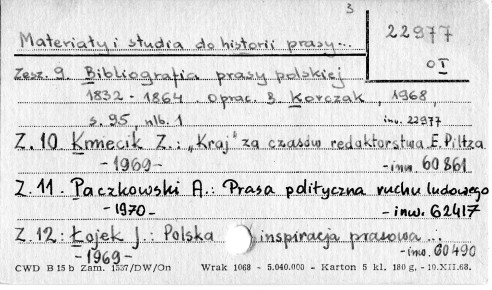 3
Materiały i studia do historii prasy...
22977
OI
Zesz. 9. Bibliografia prasy polskiej
1832 - 1864. oprac. B. Korczak, 1968,
s. 95, nlb. 1
inw. 22977
Z. 10 Kmiecik Z.: „Kraj" za czasów redaktorstwa E. Piltza
- 1969 -
- inw. 60861
Z. 11. Paczkowski A.: Prasa polityczna ruchu ludowego
- 1970 -
- inw. 62417
Z. 12. Łojek J.: Polska inspiracja prasowa...
- 1969 -
- inw. 60490
CWD B 15 b Zam. 1537/DW/On Wrak 1068 - 5.040.000 - Karton 5 kl. 180 g, - 10.XII.68.